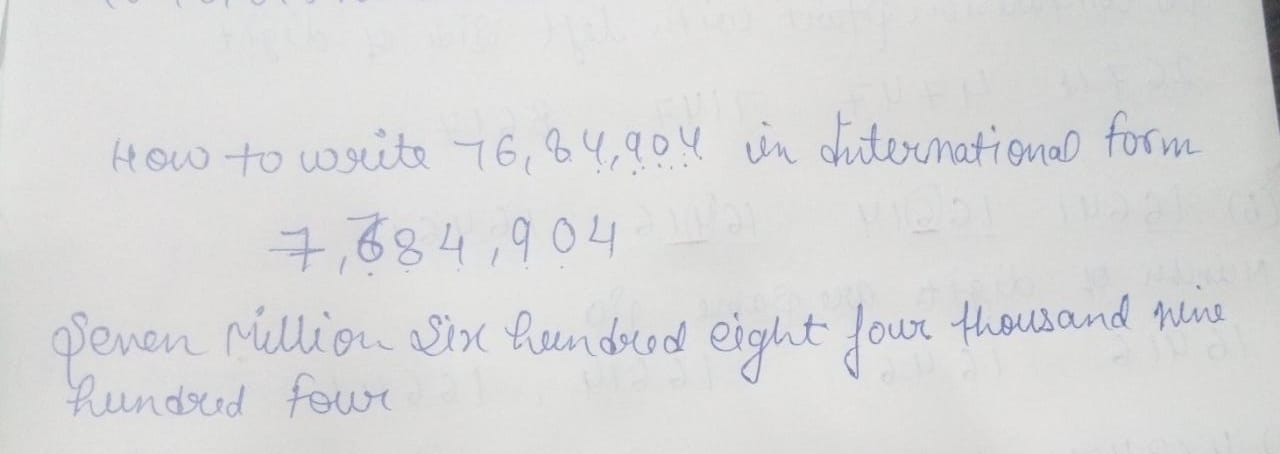 How to write 76,84,904 in International form
7,684,904
Seven Million Six hundred eight four thousand nine
hundred four